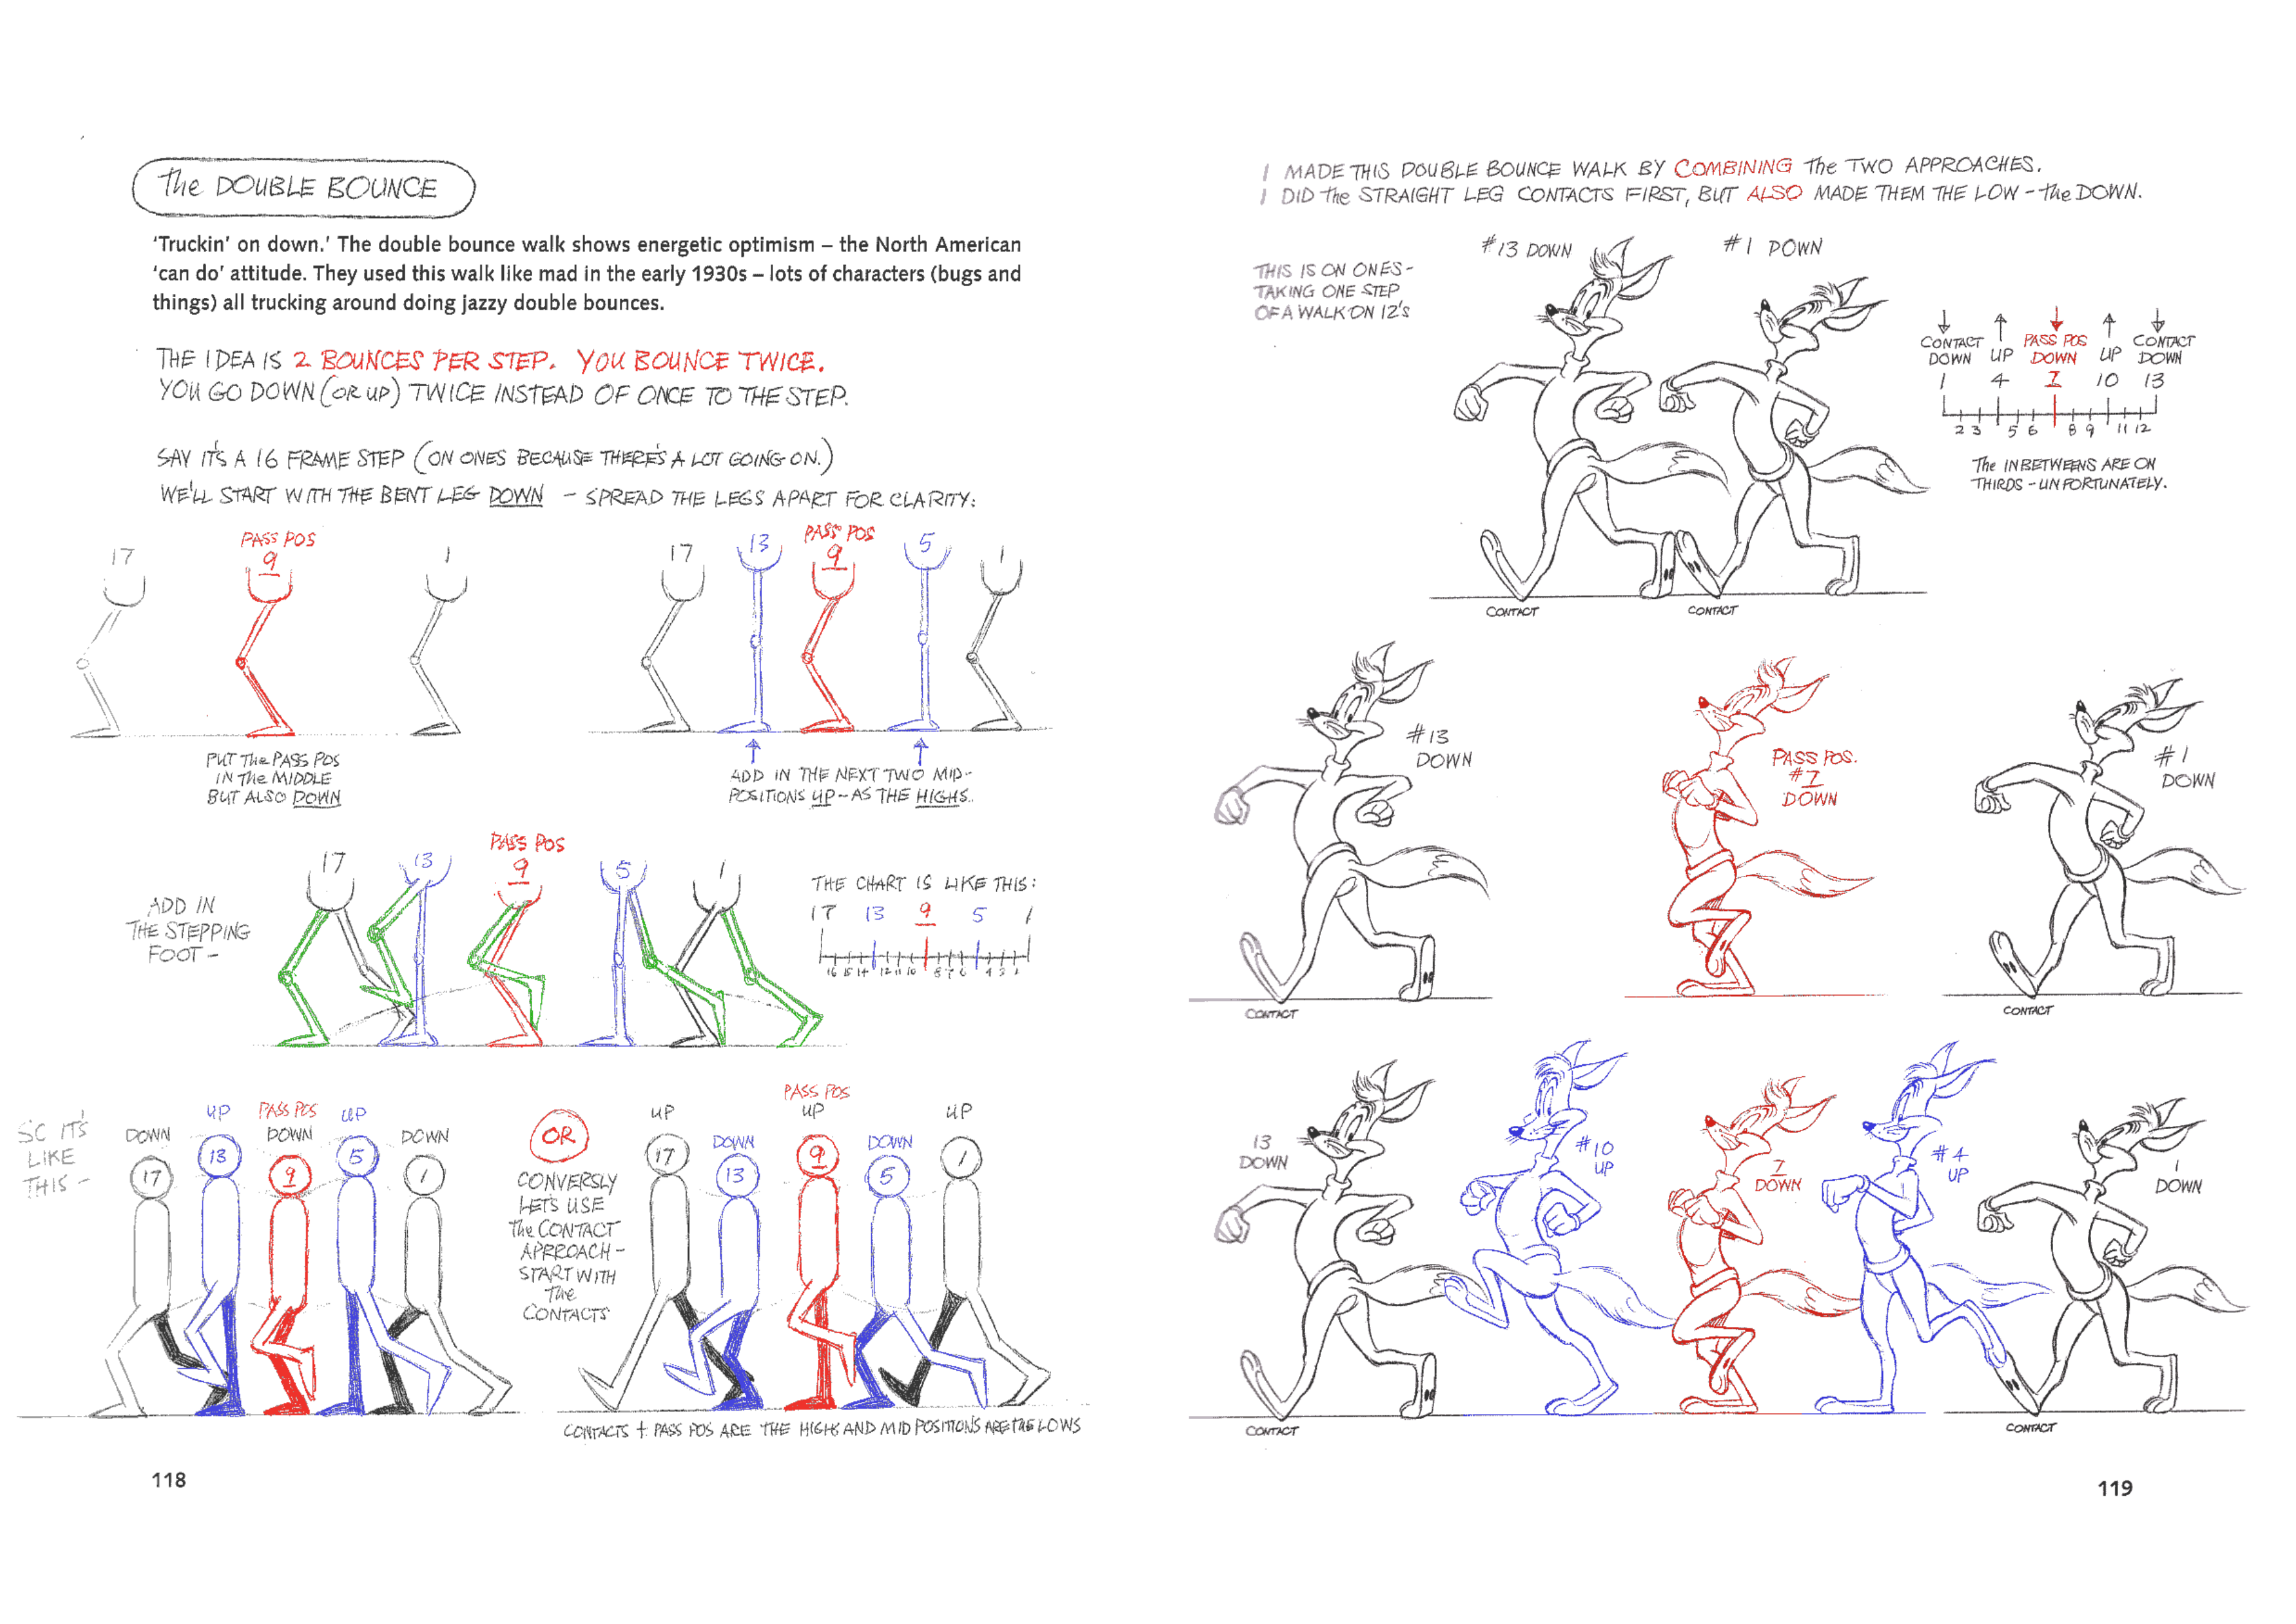 The DOUBLE BOUNCE
'Truckin' on down.' The double bounce walk shows energetic optimism – the North American
'can do' attitude. They used this walk like mad in the early 1930s – lots of characters (bugs and
things) all trucking around doing jazzy double bounces.
THE IDEA IS 2 BOUNCES PER STEP. YOU BOUNCE TWICE.
YOU GO DOWN (OR UP) TWICE INSTEAD OF ONCE TO THE STEP.
SAY IT'S A 16 FRAME STEP (ON ONES BECAUSE THERE'S A LOT GOING ON.)
WE'LL START WITH THE BENT LEG DOWN – SPREAD THE LEGS APART FOR CLARITY:
17
PASS POS
9
1
17
13
PASS POS
9
5
1
PUT THE PASS POS
IN THE MIDDLE
BUT ALSO DOWN
ADD IN THE NEXT TWO MID-
POSITIONS UP – AS THE HIGHS.
ADD IN
THE STEPPING
FOOT –
17
13
PASS POS
9
5
1
THE CHART IS LIKE THIS:
17 13 9 5 1
16 15 14 12 11 10 8 7 6 4 3 2
SO IT'S
LIKE
THIS –
DOWN
17
UP
13
PASS POS
DOWN
9
UP
5
DOWN
1
OR
CONVERSLY
LET'S USE
The CONTACT
APPROACH –
START WITH
The
CONTACTS
UP
17
DOWN
13
PASS POS
UP
9
DOWN
5
UP
1
CONTACTS + PASS POS ARE THE HIGHS AND MID POSITIONS ARE THE LOWS
118
I MADE THIS DOUBLE BOUNCE WALK BY COMBINING The TWO APPROACHES.
I DID The STRAIGHT LEG CONTACTS FIRST, BUT ALSO MADE THEM THE LOW – the DOWN.
THIS IS ON ONES –
TAKING ONE STEP
OF A WALK ON 12's
#13 DOWN
#1 DOWN
CONTACT
CONTACT
CONTACT
DOWN
UP
PASS POS
DOWN
UP
CONTACT
DOWN
1 4 7 10 13
2 3 5 6 8 9 11 12
The INBETWEENS ARE ON
THIRDS – UNFORTUNATELY.
#13
DOWN
CONTACT
PASS POS.
#7
DOWN
#1
DOWN
CONTACT
13
DOWN
CONTACT
#10
UP
7
DOWN
#4
UP
1
DOWN
CONTACT
119